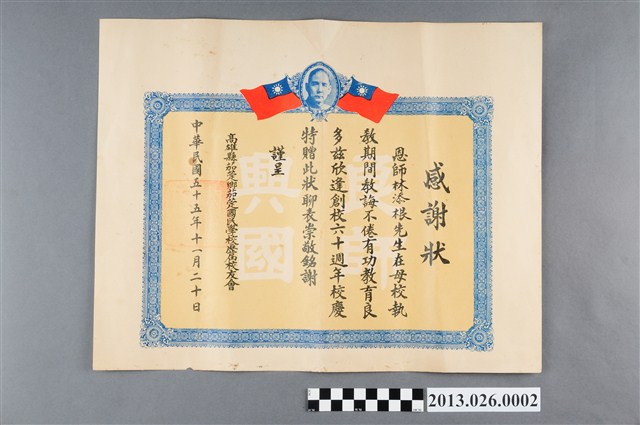 感謝狀
恩師林添根先生在母校執
教期間教誨不倦有功教育良
多茲欣逢創校六十週年校慶
特贈此狀聊表崇敬銘謝
謹呈
高雄縣茄萣鄉茄萣國民學校歷屆校友會
中華民國五十五年十一月二十日
良師
興國
2013.026.0002